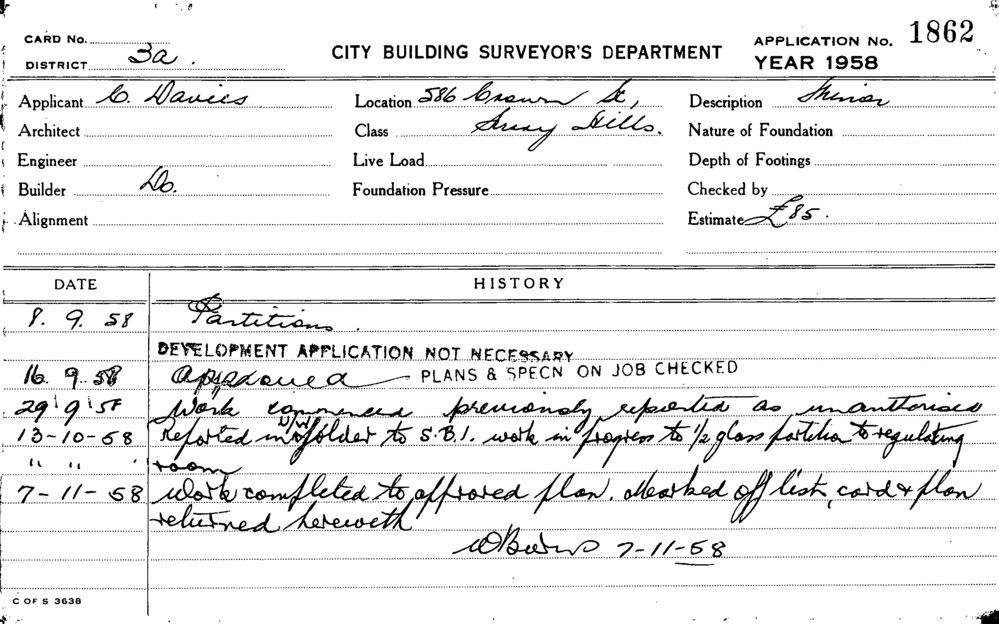 CARD No.
DISTRICT 3a.
CITY BUILDING SURVEYOR'S DEPARTMENT
APPLICATION No. 1862
YEAR 1958
Applicant C. Davies
Location 586 Crown St,
Description Minor
Architect
Class Surry Hills.
Nature of Foundation
Engineer
Live Load
Depth of Footings
Builder Do.
Foundation Pressure
Checked by
Alignment
Estimate £85.
DATE HISTORY
8. 9. 58 Partitions.
DEVELOPMENT APPLICATION NOT NECESSARY
16. 9. 58 Approved PLANS & SPECN ON JOB CHECKED
29 9 58 Work commenced previously reported as unauthorised
13-10-58 Reported in D/W folder to S.B.I. work in progress to 1/2 glass partition to regulating
" " " room
7-11-58 Work completed to approved plan. Marked off list, card & plan
returned herewith
7-11-58
C OF S 3638